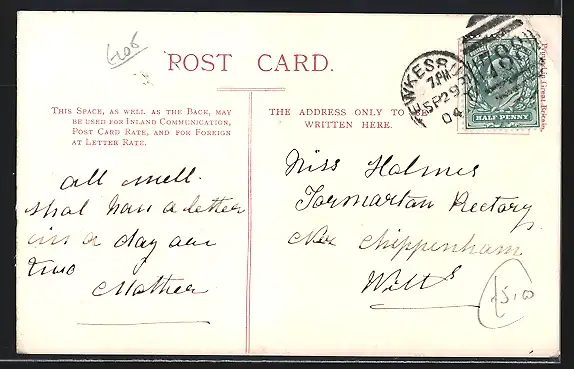 £06
POST CARD.
TEWKESBURY
7.PM
SP 29
04
HALF PENNY
THIS SPACE, AS WELL AS THE BACK, MAY
BE USED FOR INLAND COMMUNICATION,
POST CARD RATE, AND FOR FOREIGN
AT LETTER RATE.
THE ADDRESS ONLY TO BE
WRITTEN HERE.
all well.
shal have a letter
in a day aur
two
Mother
Miss Holmes
Tormarton Rectory
Nr Chippenham
Wilts
£5.00